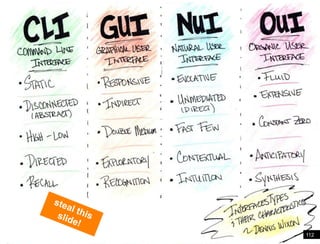 CLI
COMMAND LINE
INTERFACE
• STATIC
• DISCONNECTED
(ABSTRACT)
• HIGH - LOW
• DIRECTED
• RECALL
GUI
GRAPHICAL USER
INTERFACE
• RESPONSIVE
• INDIRECT
• DOUBLE MEDIUM
• EXPLORATORY
• RECOGNITION
NUI
NATURAL USER
INTERFACE
• EVOCATIVE
• UNMEDIATED
(DIRECT)
• FAST FEW
• CONTEXTUAL
• INTUITION
OUI
ORGANIC USER
INTERFACE
• FLUID
• EXTENSIVE
• CONSTANT ZERO
• ANTICIPATORY
• SYNTHESIS
steal this
slide!
INTERFACES TYPES
& THEIR CHARACTERISTICS
~ DENNIS WIXON
112